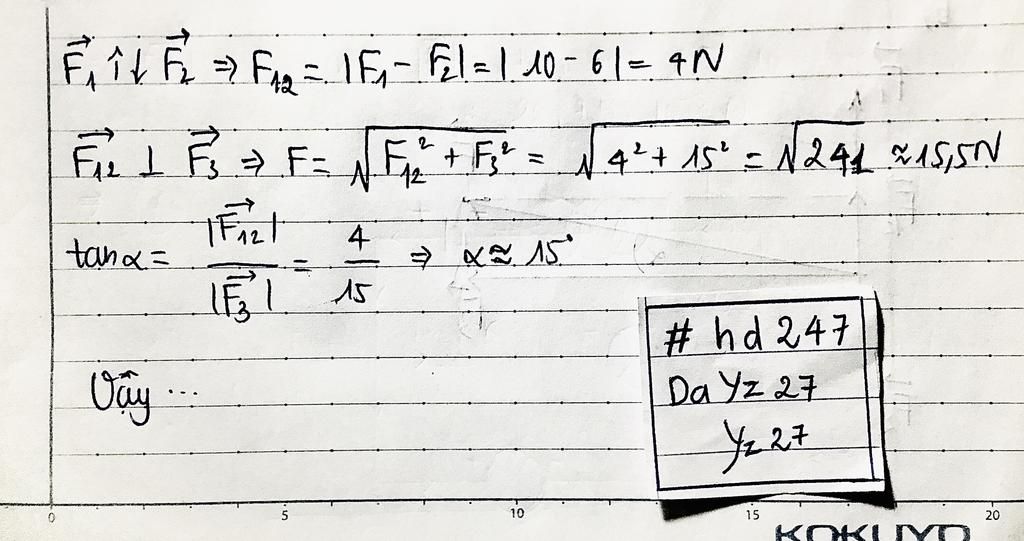 F₁⃗ ↑↓ F₂⃗ ⇒ F₁₂ = |F₁ - F₂| = | 10 - 6 | = 4N
F₁₂⃗ ⊥ F₃⃗ ⇒ F = √(F₁₂² + F₃²) = √(4² + 15²) = √241 ≈ 15,5N
tanα = |F₁₂⃗| / |F₃⃗| = 4/15 ⇒ α ≈ 15°
Vậy ...
# hd 247
Da Yz 27
Yz 27
0 5 10 15 20
KOKUYO